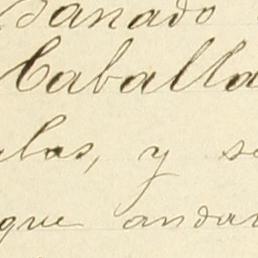 Sanado
Caballa
las, y se
que andar